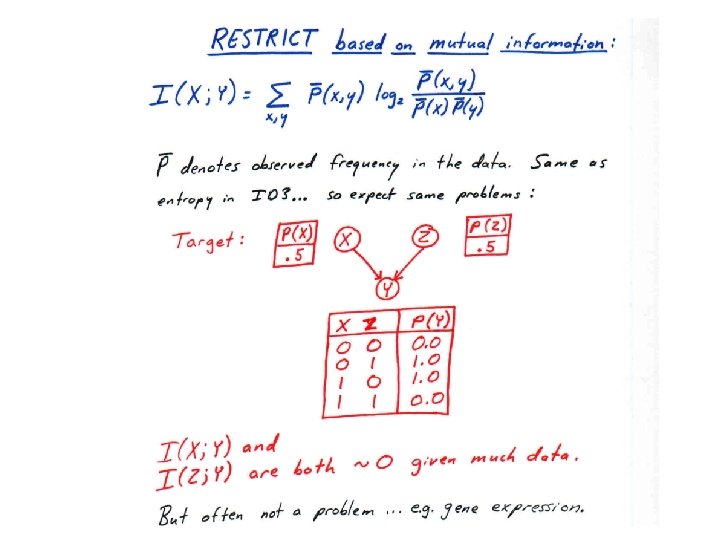 RESTRICT based on mutual information:
I(X;Y) = Σ P̄(x,y) log₂ P̄(x,y)
x,y P̄(x)P̄(y)
P̄ denotes observed frequency in the data. Same as
entropy in ID3... so expect same problems:
Target: P(X) X Z P(Z)
.5 .5
Y
X Z P(Y)
0 0 0.0
0 1 1.0
1 0 1.0
1 1 0.0
I(X;Y) and
I(Z;Y) are both ~0 given much data.
But often not a problem ... e.g. gene expression.